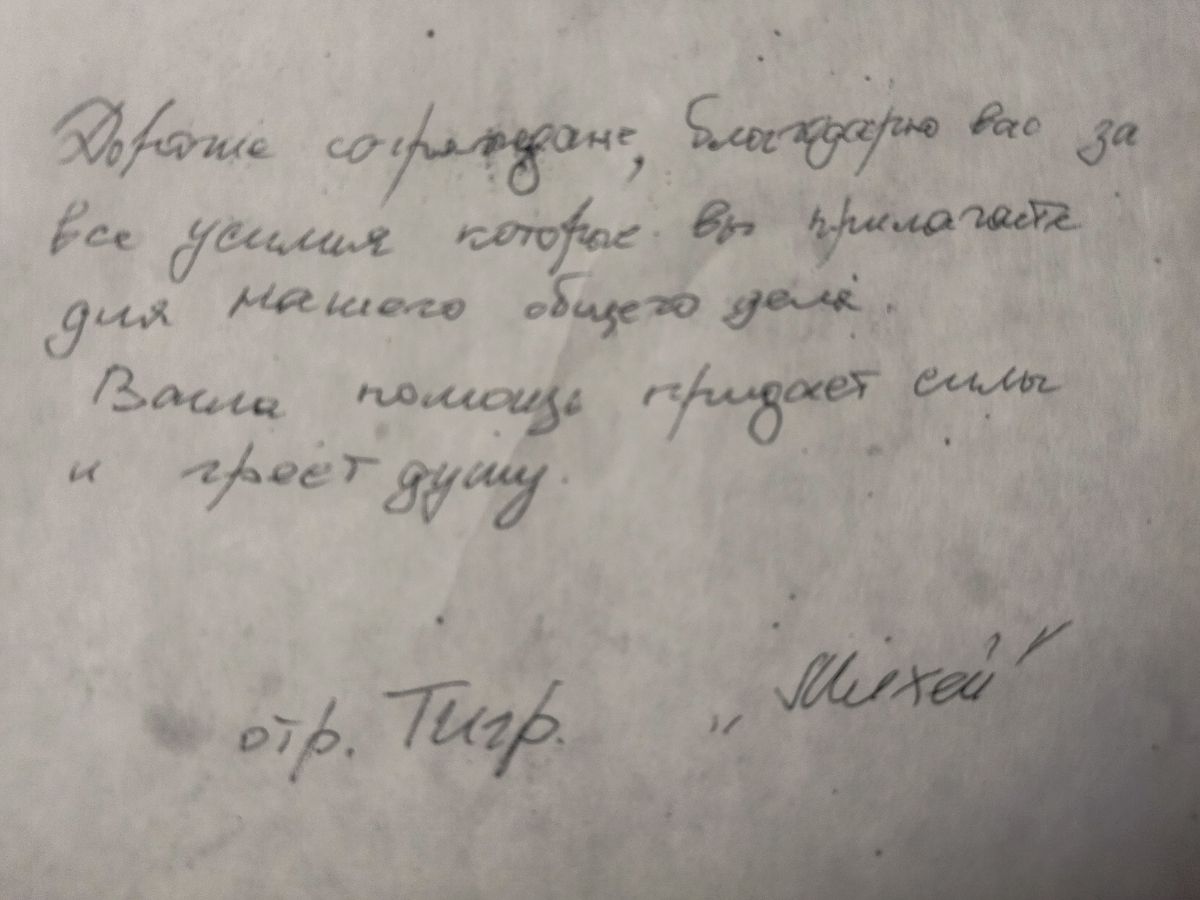 Дорогие сограждане, благодарю вас за
все усилия которые вы прилагаете
для нашего общего дела.
Ваша помощь придает силы
и греет душу.
отр. Тигр. „Михей"